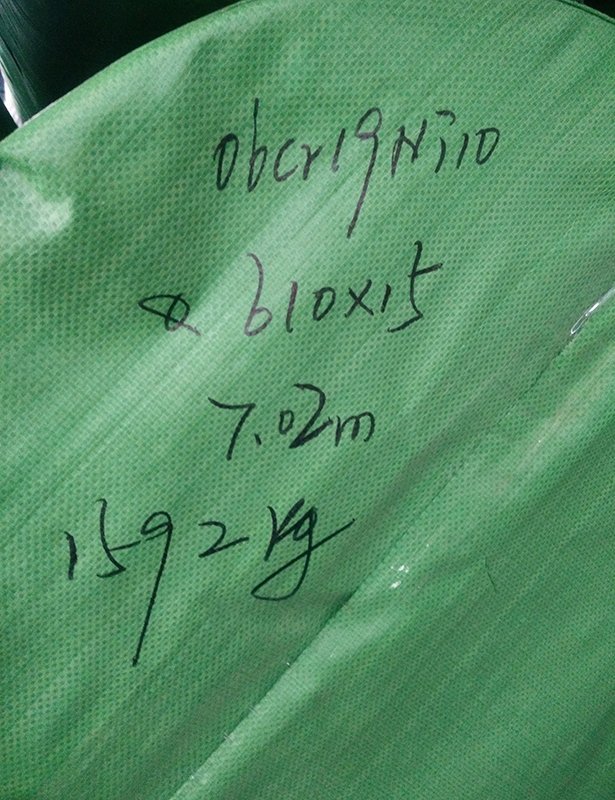 06Cr19Ni10
Φ 610×15
7.02m
1592kg